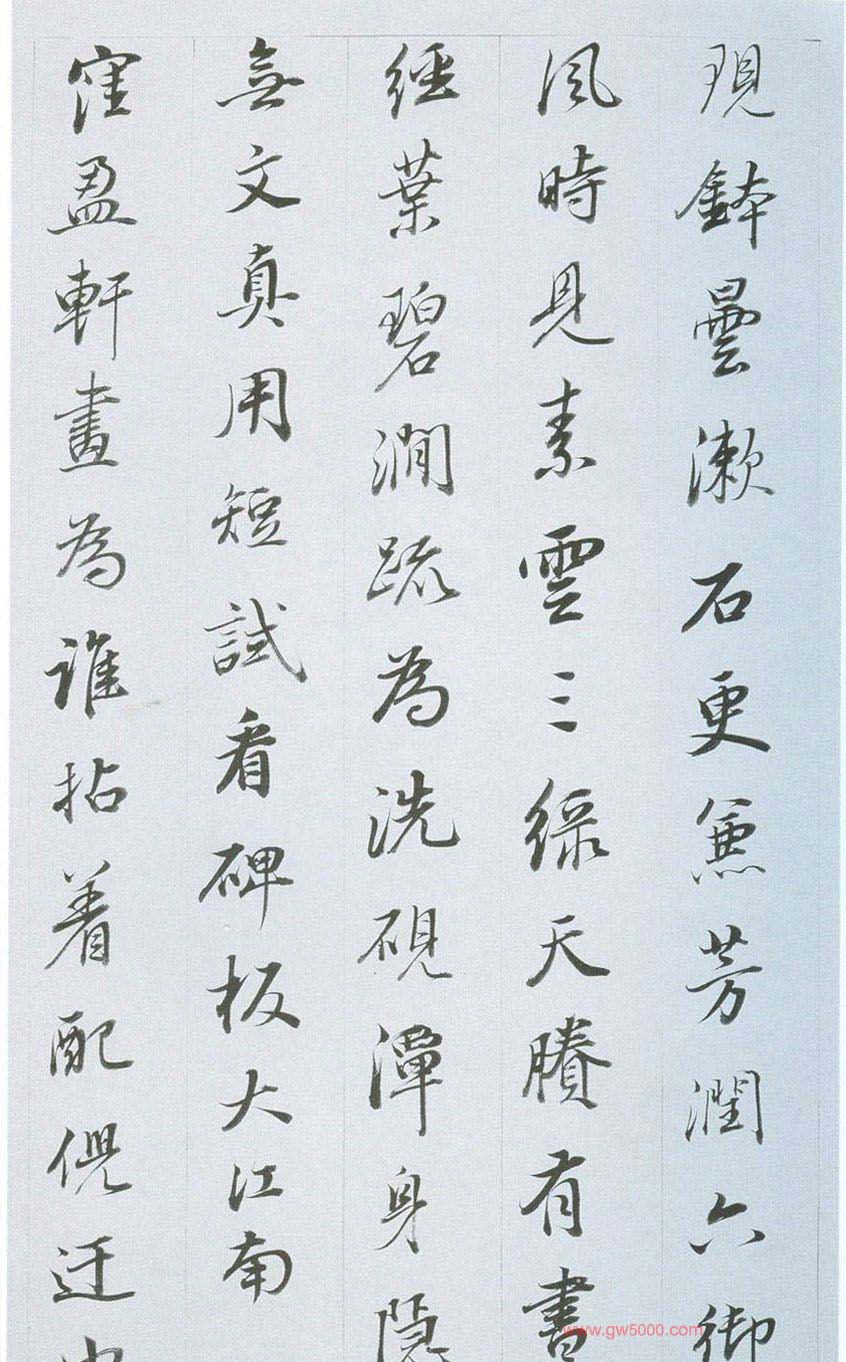 現鉢曇漱石更兼芳潤六御
風時見素雲三綠天賸有書
經葉碧澗疏為洗硯潭身隱
無文真用短試看碑板大江南
窪盈軒畫為誰拈着配倪迂
www.gw5000.com